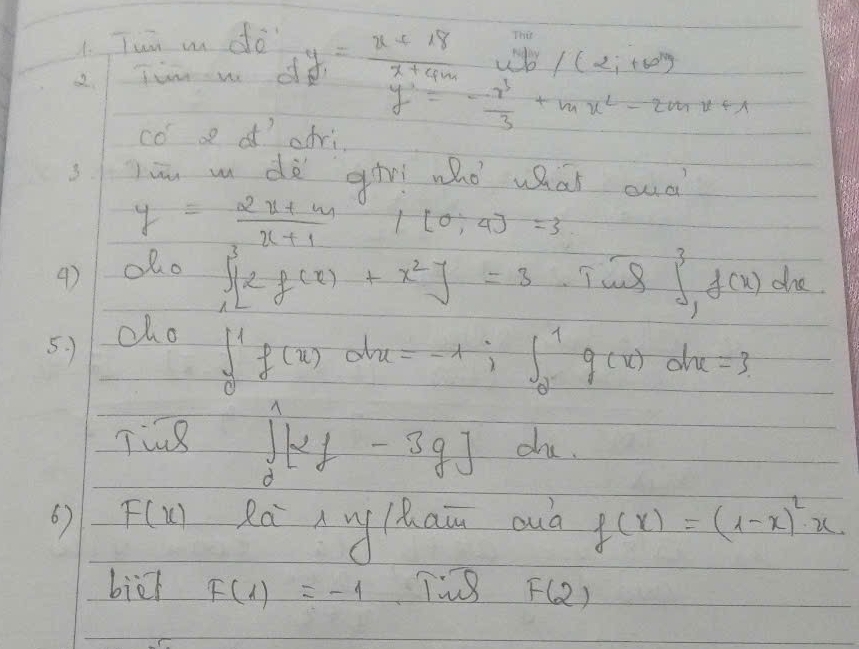 Thứ
Ngày
1. Tìm m để y = \frac{x + 18}{x + 4m} nb / (2; +∞)
2. Tìm m để y = -\frac{x³}{3} + mx² - 2mx + 1
có 2 đ' ctrị.
3. Tìm m để gtrị nhỏ nhất của
y = \frac{2x + m}{x + 1} / [0; 4] = 3.
4) Cho ∫₁³ [2f(x) + x²] = 3. Tính ∫₁³ f(x) dx.
5.) Cho ∫₀¹ f(x) dx = -1; ∫₀¹ g(x) dx = 3
Tính ∫₀¹ [2f - 3g] dx.
6) F(x) là 1 ng/hàm của f(x) = (1-x)².x.
biết F(1) = -1. Tính F(2)